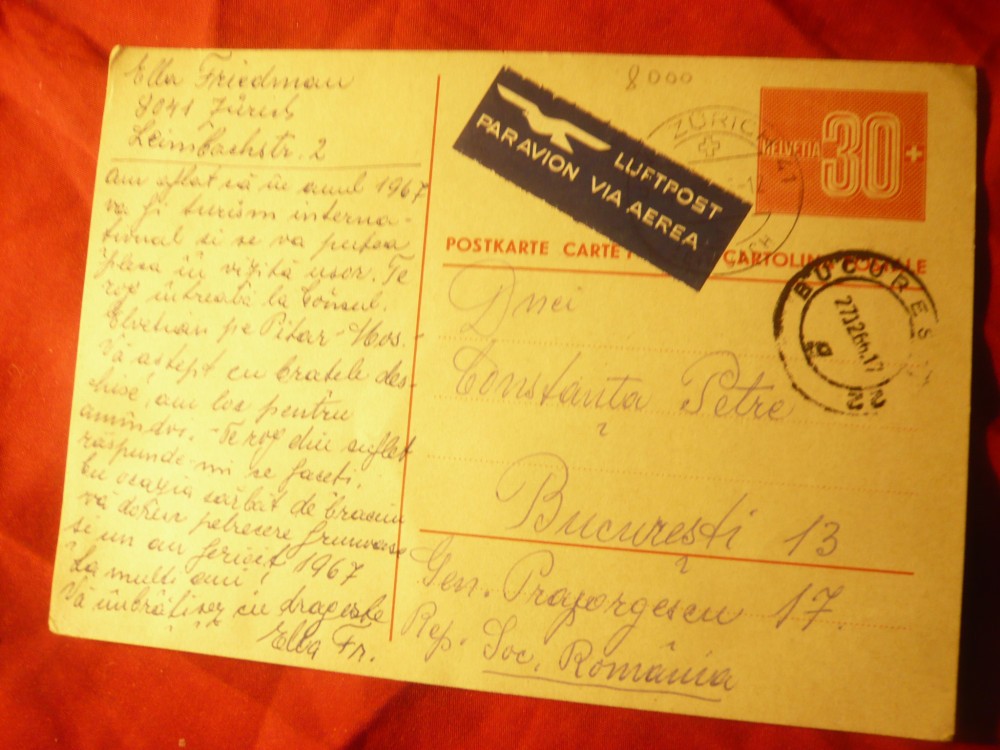 Ella Friedman
8041 Zürich
Leimbachstr. 2
am aflat că în anul 1967
va fi turism interna-
tional si se va putea
pleca în vizită usor. Te
rog întreabă la Consul.
Elvetian pe Pitar-Mos.-
Vă astept cu bratele des-
hise, am loc pentru
amîndoi. - Te rog din suflet
răspunde-mi ce faceti.
Cu ocazia sărbăt de braciun
vă doresc petrecere frumoasă
si un an fericit 1967
La multi ani!
Vă îmbrătisez cu dragoste
Ella Fr.
8000
PAR AVION VIA AEREA
LUFTPOST
ZÜRICH 41
HELVETIA 30+
POSTKARTE CARTE CARTOLINA POSTALE
BUCURES
271266.17
Dnei
Constanța Petre
București 13
Gen. Praporgescu 17.
Rep. Soc. România